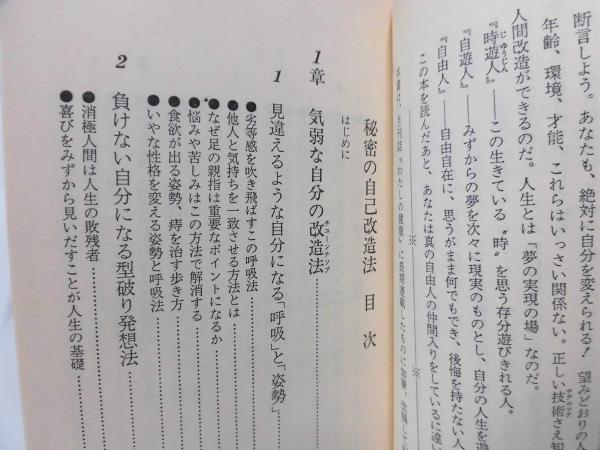 断言しよう。あなたも、絶対に自分を変えられる! 望みどおりの人
年齢、環境、才能、これらはいっさい関係ない。正しい技術さえ知
テクニック
人間改造ができるのだ。人生とは「夢の実現の場」なのだ。
『時遊人』——この生きている〝時〟を思う存分遊びきれる人。
じゆうじん
『自遊人』——みずからの夢を次々に現実のものとし、自分の人生を遊
『自由人』——自由自在に、思うがまま何でもでき、後悔を持たない人
この本を読んだあと、あなたは真の自由人の仲間入りをしているに違い
※ ※
本書は、月刊誌『わたしの健康』に長期連載したものに加筆、
秘密の自己改造法 目次
はじめに
1章 気弱な自分の改造法
チューンナップ
1 見違えるような自分になる「呼吸」と「姿勢」
●劣等感を吹き飛ばすこの呼吸法
●他人と気持ちを一致させる方法とは
●なぜ足の親指は重要なポイントになるか
●悩みや苦しみはこの方法で解消する
●食欲が出る姿勢、痔を治す歩き方
●いやな性格を変える姿勢と呼吸法
2 負けない自分になる型破り発想法
●消極人間は人生の敗残者
●喜びをみずから見いだすことが人生の基礎